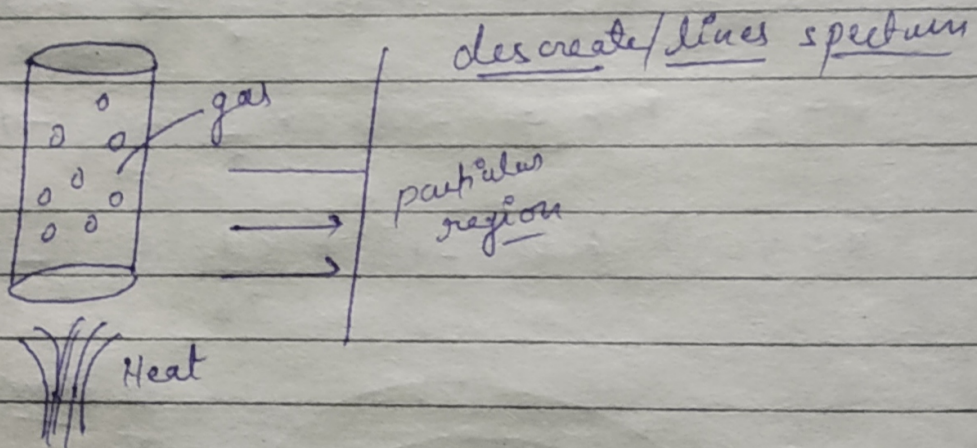 descreate/lines spectrum
gas
particular
region
Heat